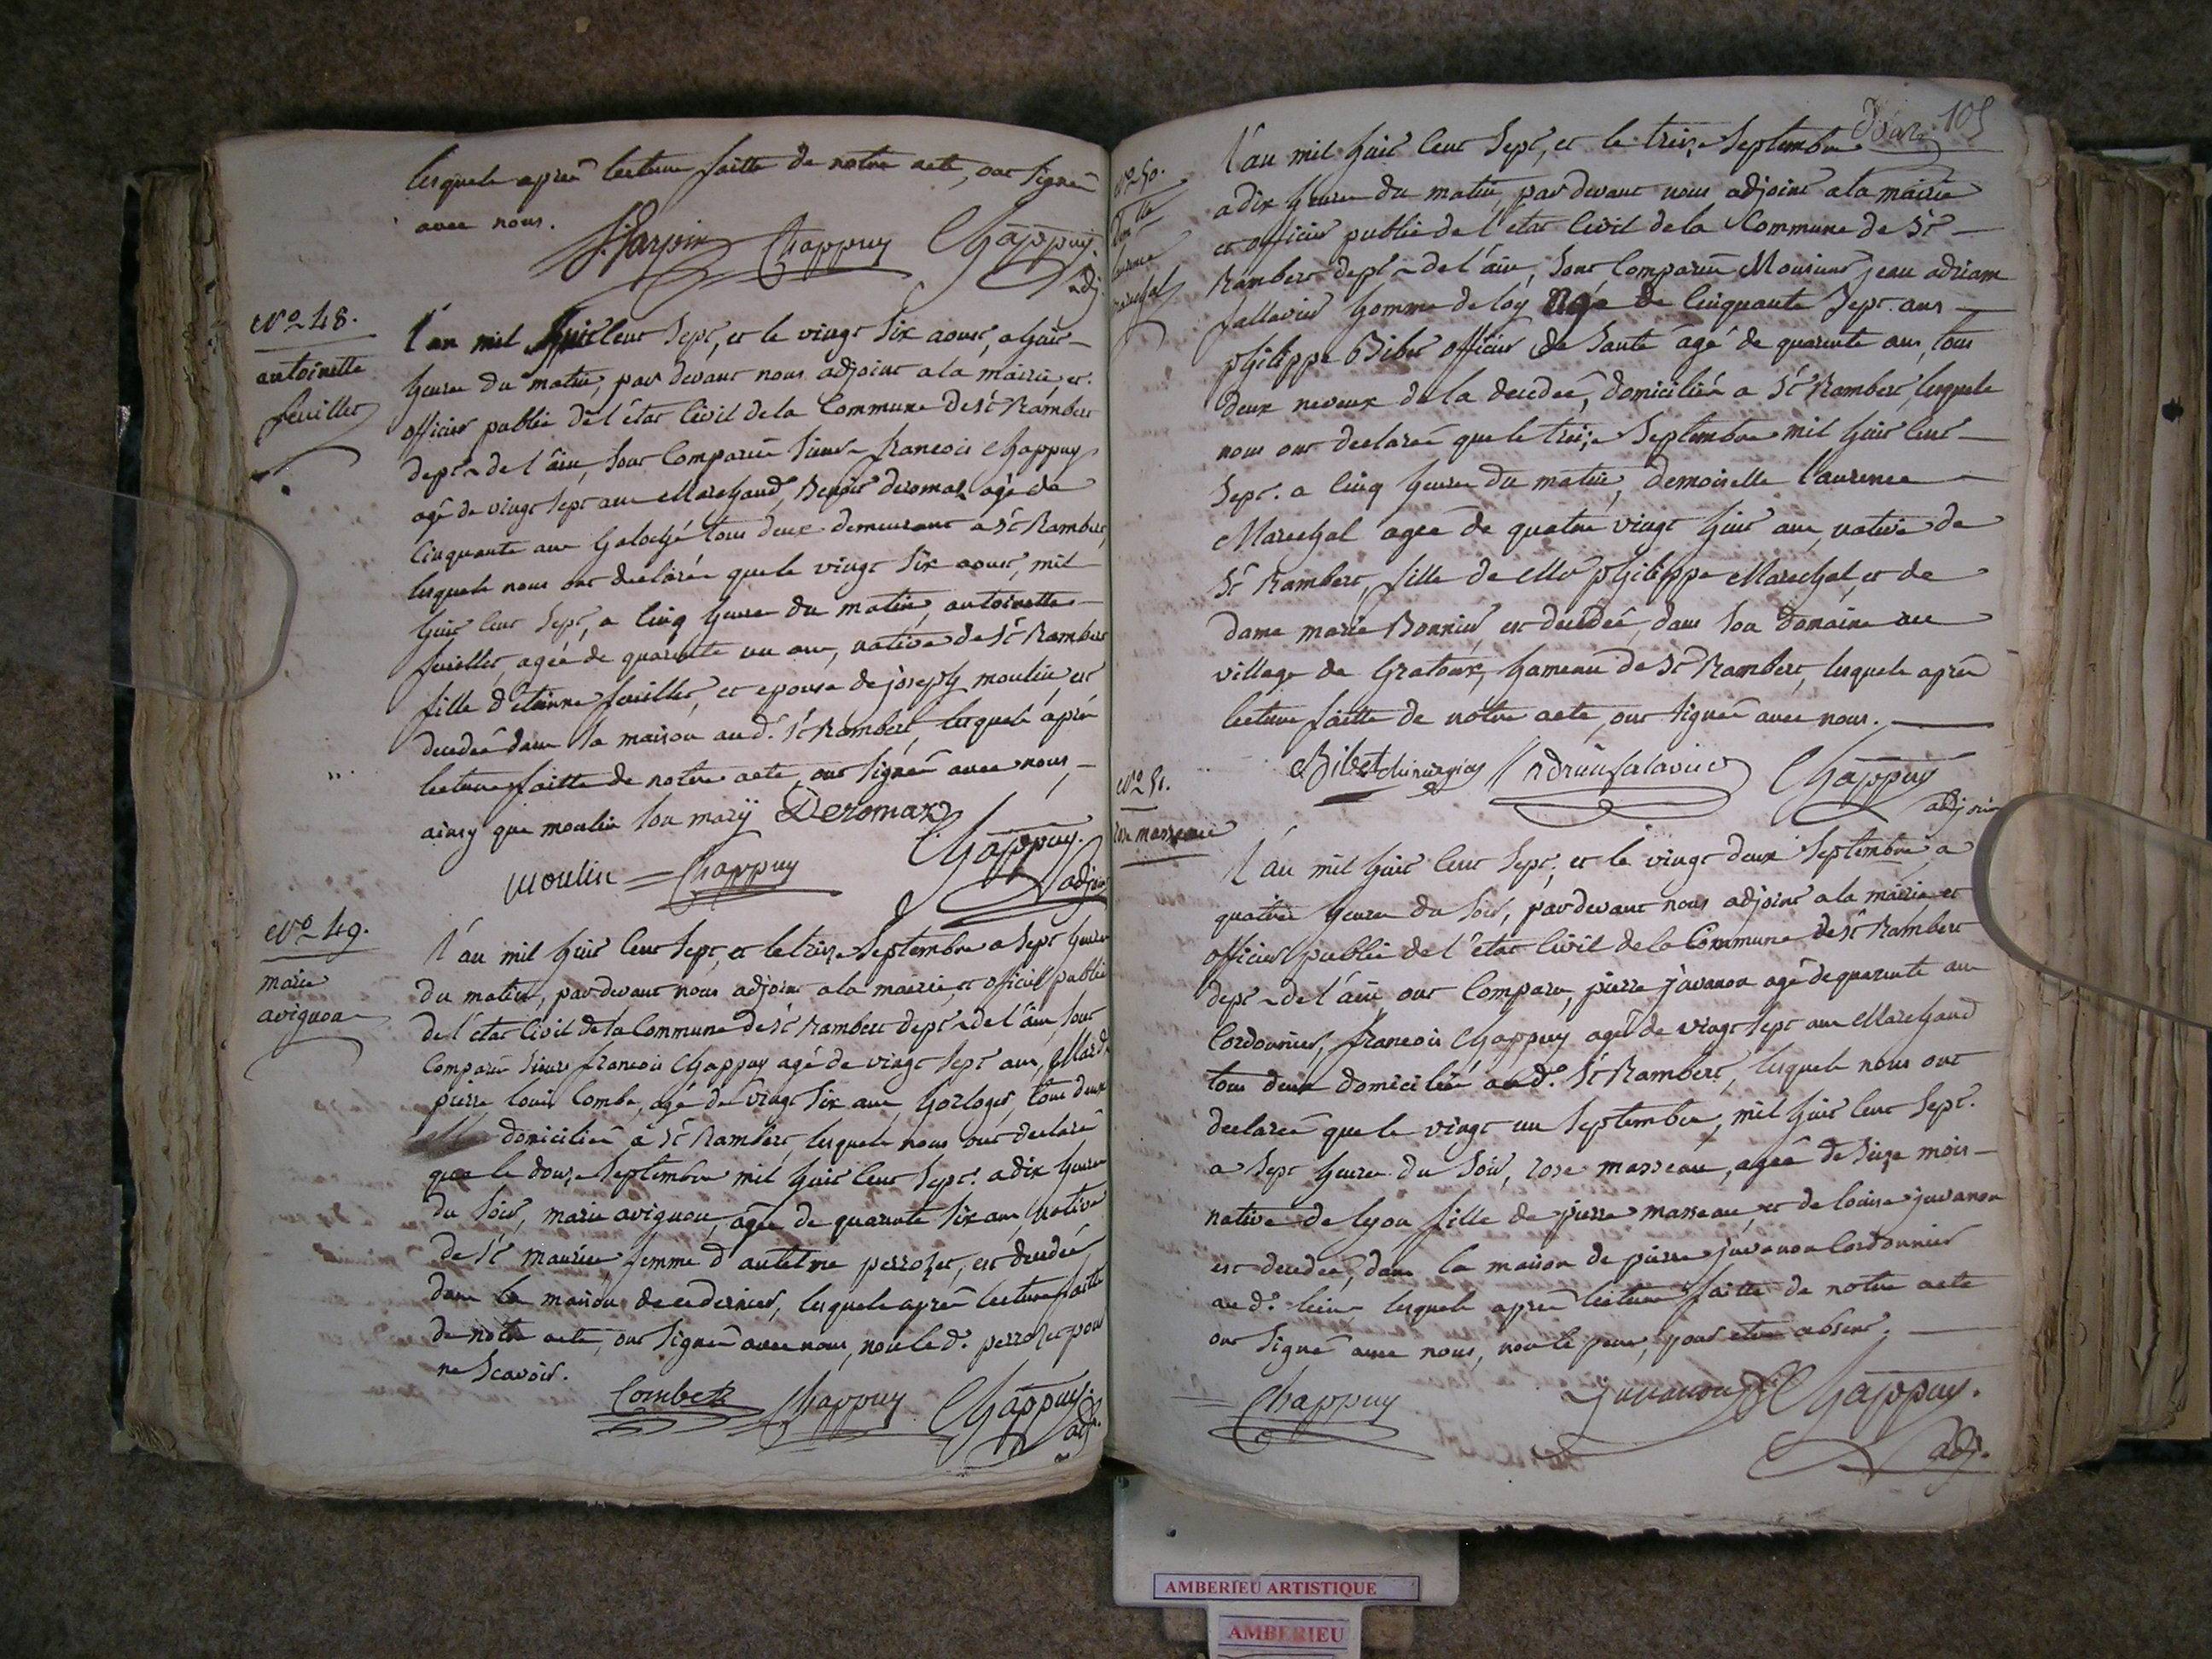 lesquels après lecture faitte de notre acte, ont signés
avec nous.
Chappuy Chappuy
adj.
N° 48.
antoinette
feuillet
L'an mil huit cent sept, et le vingt six aoust, a huit
heures du matin, par devant nous adjoint a la mairie, et
officier public de l'état civil de la Commune de St Rambert
dept de l'ain, sont comparus sieurs francois Chappuy
agé de vingt sept ans Marchand, Benoit deromas agé de
cinquante ans Galoché tous deux demeurant a St Rambert,
lesquels nous ont declarés que le vingt six aoust, mil
huit cent sept, a cinq heures du matin, antoinette
feuillet, agée de quarente un ans, native de St Rambert
fille d'etienne feuillet, et epouse de joseph moulin, est
decedeé dans sa maison aud. St Rambert, lesquels après
lecture faitte de notre acte, ont signés avec nous,
ainsy que moulin son mary Deromax
moulin Chappuy Chappuy.
adjoint
N° 49.
marie
avignon
L'an mil huit cent sept, et le treize Septembre a sept heures
du matin, par devant nous adjoint a la mairie, et officier public
de l'etat civil de la Commune de St Rambert dept de l'ain, sont
comparus sieurs francois Chappuy agé de vingt sept ans, Mard
pierre louis Combe, agé de vingt six ans, horloger, tous deux
domiciliés a St Rambert, lesquels nous ont declaré
que le douze Septembre mil huit cent sept. a dix heures
du soir, marie avignon, agée de quarente six ans, native
de St maurice femme d'antelme perrozet, est decedée
dans la maison de ce dernier, lesquels après lecture faitte
de notre acte, ont signés avec nous, non le d. perrozet pour
ne scavoir.
Combet Chappuy Chappuy
adj.
105
N° 50.
dlle
laurence
marechal
L'an mil huit cent sept, et le treize Septembre
a dix heures du matin, par devant nous adjoint a la mairie
et officier public de l'etat civil de la Commune de St
Rambert dept de l'ain, sont comparus Monsieur jean adriam
fallavier homme de loy agé de cinquante sept ans
philippe Bibet officier de santé agé de quarente ans, tous
deux neveux de la decedeé, domiciliés a St Rambert, lesquels
nous ont declarés que le treize Septembre mil huit cent
sept. a cinq heures du matin, demoiselle laurence
Marechal agée de quatre vingt huit ans, native de
St Rambert, fille de Mr philippe Marechal, et de
dame marie Bonnier est decedeé, dans son domaine au
village de Gratoux, hameau de St Rambert, lesquels après
lecture faitte de notre acte, ont signés avec nous.
Bibet chirurgien Chappuy
adjoint
N° 51.
rose masseau
L'an mil huit cent sept, et le vingt deux Septembre a
quatre heures du soir, par devant nous adjoint a la mairie et
officier public de l'etat civil de la Commune de St Rambert
dept de l'ain ont comparu, pierre juvanon agé de quarente ans
Cordonnier, francois Chappuy agé de vingt sept ans Marchand
tous deux domiciliés aud. St Rambert, lesquels nous ont
declarés que le vingt un Septembre, mil huit cent sept.
a sept heures du soir, rose masseau, agée de seize mois
native de lyon fille de pierre masseau, et de louise juvanon
est decedeé, dans la maison de pierre juvanon Cordonnier
aud. lieu lesquels après lecture faitte de notre acte
ont signé avec nous, non le pere, pour etre absent.
Chappuy Juvanon Chappuy.
adj.
AMBERIEU ARTISTIQUE
AMBERIEU